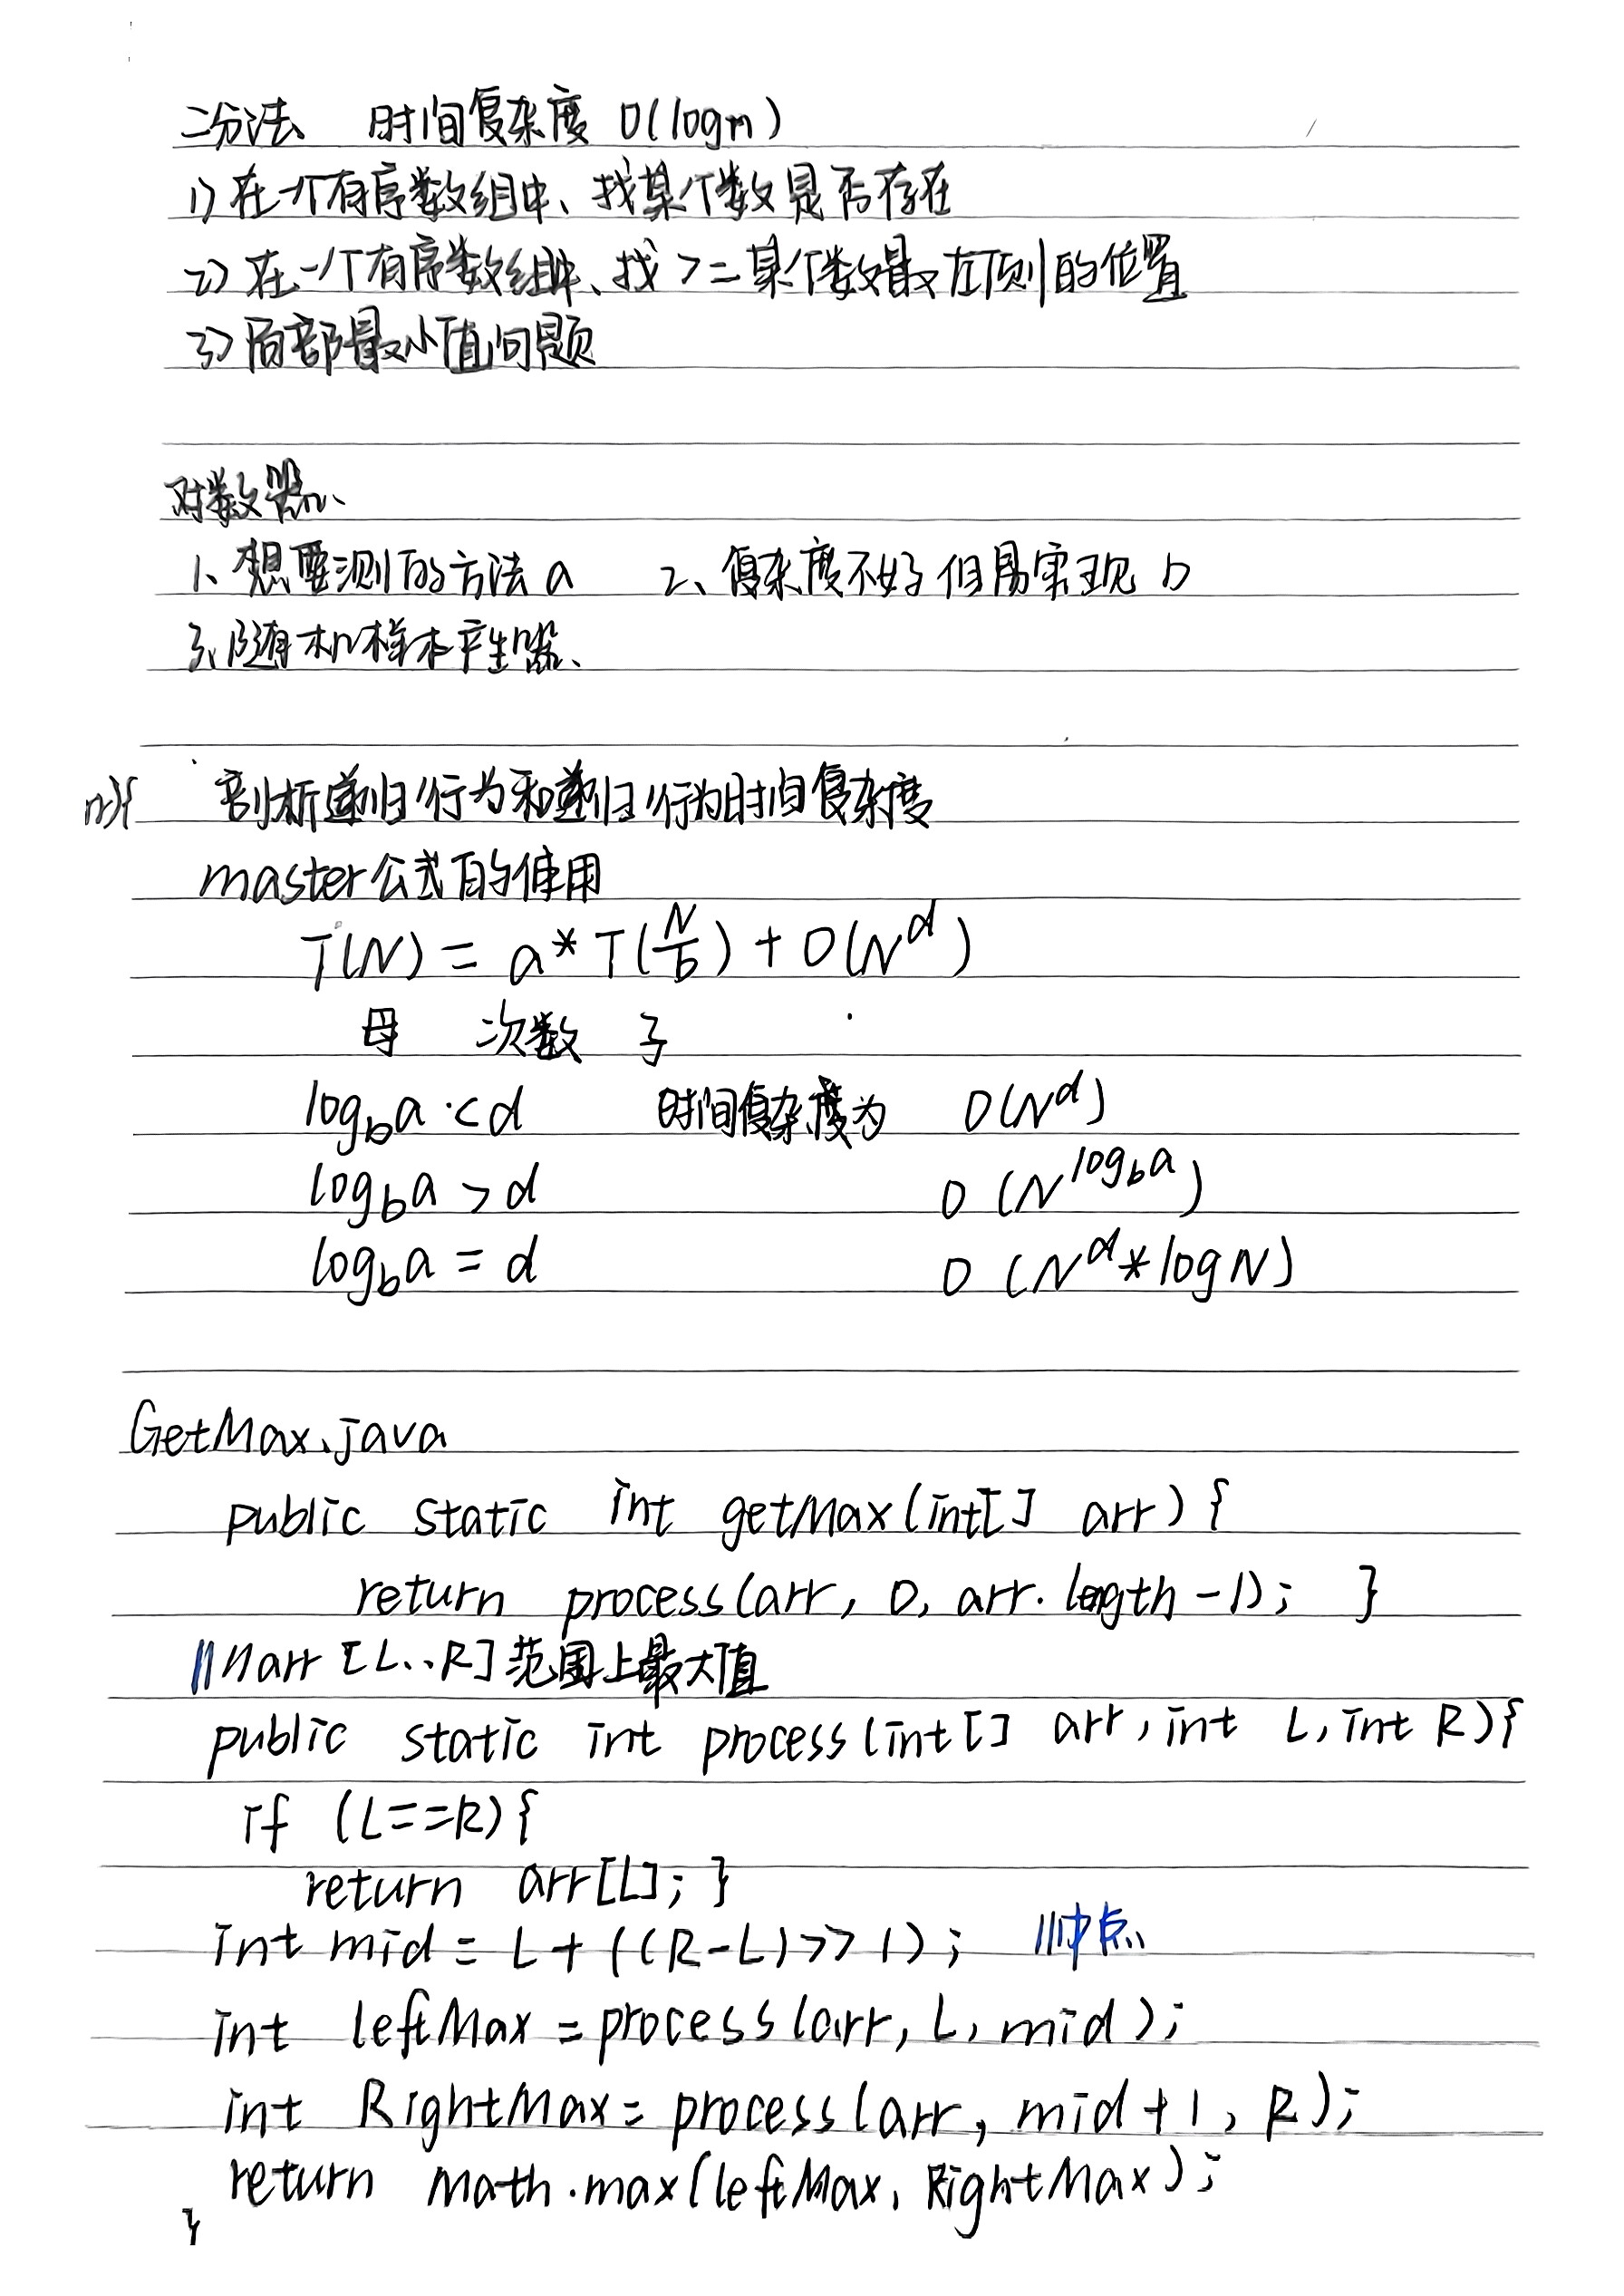 二分法 时间复杂度 O(logn)
1) 在一个有序数组中、找某个数是否存在
2) 在一个有序数组中、找>=某个数最左侧的位置
3) 局部最小值问题
对数器、
1、想要测的方法a 2、复杂度不好但易实现b
3、随机样本产生器、
n){ 剖析递归行为和递归行为时间复杂度
master公式的使用
T(N) = a*T(N/b) + O(N^d)
母 次数 子
log_b a < d 时间复杂度为 O(N^d)
log_b a > d O(N^{log_b a})
log_b a = d O(N^d*logN)
GetMax.java
public static int getMax(int[] arr) {
return process(arr, 0, arr.length-1); }
//arr[L..R]范围上最大值
public static int process(int[] arr, int L, int R){
if (L==R){
return arr[L]; }
int mid = L+((R-L)>>1); //中点
int leftMax = process(arr, L, mid);
int RightMax = process(arr, mid+1, R);
return math.max(leftMax, RightMax);
}